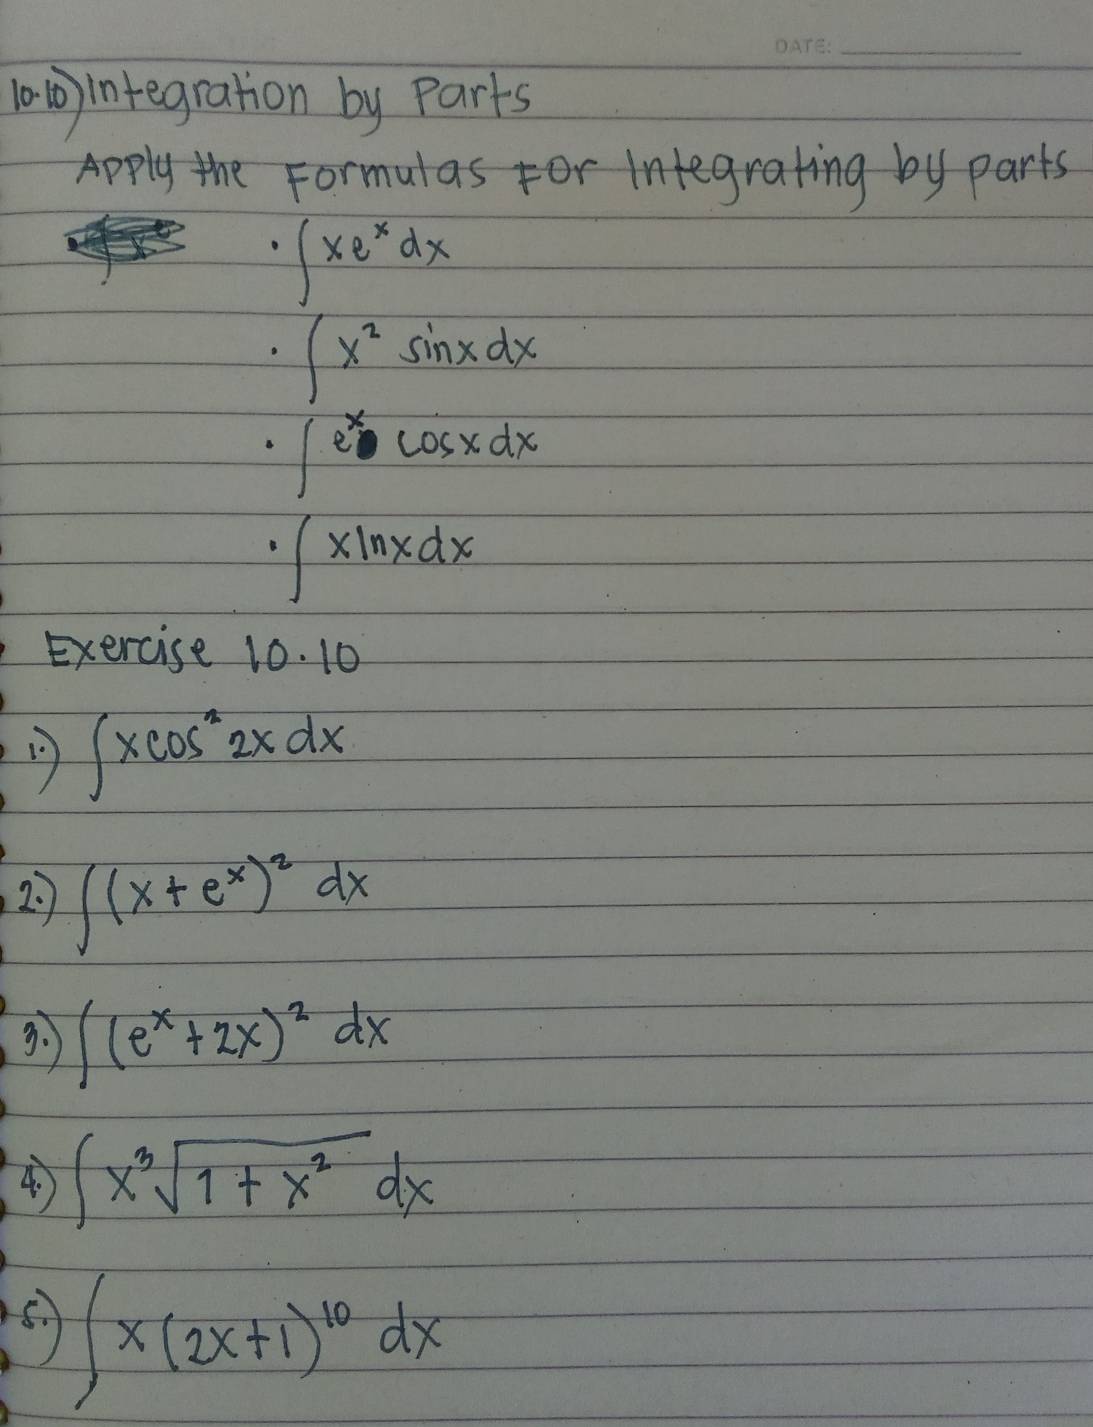 DATE:
10.10) Integration by Parts
Apply the Formulas For Integrating by parts
• ∫ xeˣ dx
• ∫ x² sinx dx
• ∫ eˣ cosx dx
• ∫ xlnx dx
Exercise 10.10
1.) ∫ xcos² 2x dx
2.) ∫ (x + eˣ)² dx
3.) ∫ (eˣ + 2x)² dx
4.) ∫ x³√(1 + x²) dx
5.) ∫ x (2x+1)¹⁰ dx